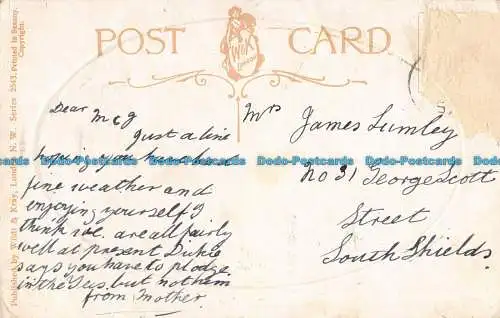 POST CARD
W&K
LONDON
Published by Wildt & Kray, London, N. W. Series 2543. Printed in Saxony.
Copyright.
Dear M c J
Just a line
hoping you have had
fine weather and
enjoying yourself I
think we are all fairly
well at present Dickie
says you have to plodge
in the Tees but not him
from Mother
Mrs
James Lumley
No 31 George Scott
Street
South Shields
Dodo-Postcards Dodo-Postcards Dodo-Postcards Dodo-Postcards Dodo-Postcards